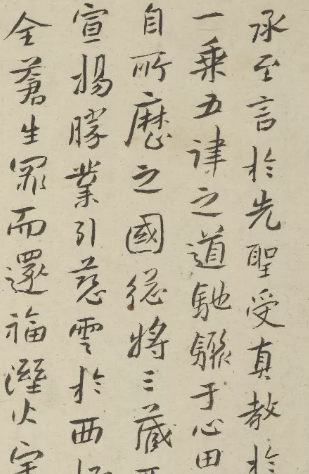 承至言於先聖受真教於
一乗五律之道馳驟于心田
自所歷之國總將三藏
宣揚勝業引慈雲於西極
全蒼生罪而還福濕火宅